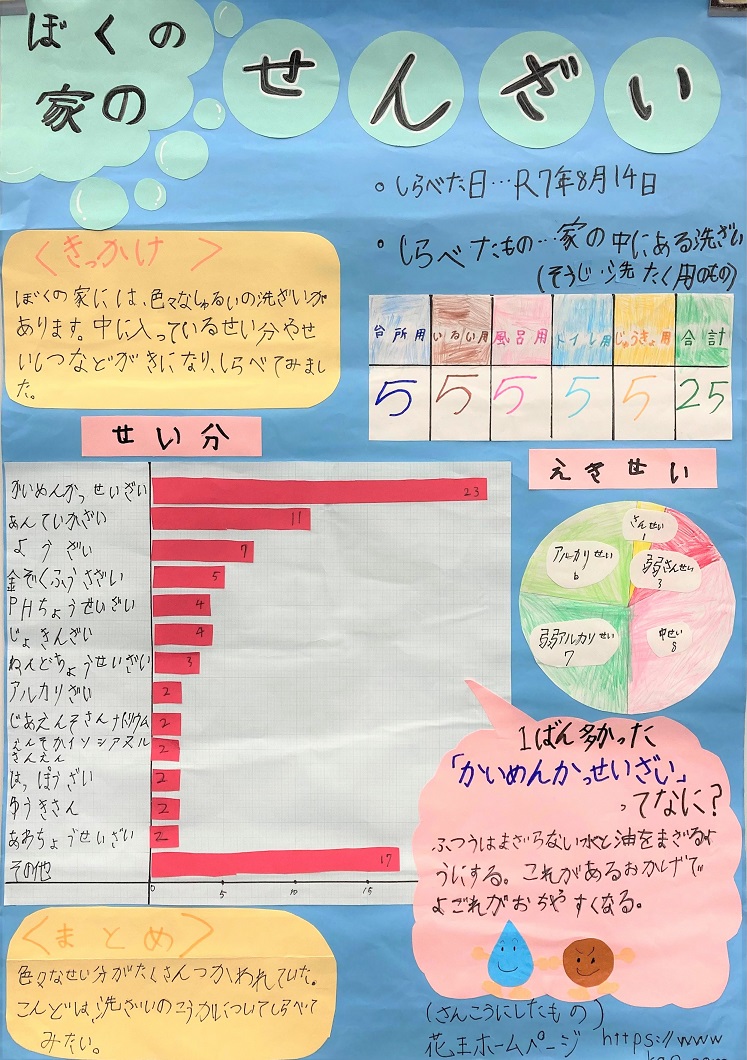 ぼくの
家の
せんざい
• しらべた日…R7年8月14日
• しらべたもの…家の中にある洗ざい
(そうじ・洗たく用のもの)
<きっかけ>
ぼくの家には、色々なしゅるいの洗ざいが
あります。中に入っているせい分やせ
いしつなどがきになり、しらべてみまし
た。
台所用 いるい用 風呂用 トイレ用 じゅうきょ用 合計
5 5 5 5 5 25
せい分
かいめんかっせいざい 23
あんていかざい 11
ようざい 7
金ぞくふうさざい 5
PHちょうせいざい 4
じょきんざい 4
ねんどちょうせいざい 3
アルカリざい 2
じあえんそさんナトリウム 2
えんそかイソシアヌル
さんえん 2
はっぽうざい 2
ゆうきさん 2
あわちょうせいざい 2
その他 17
0 5 10 15
えきせい
さんせい
1
弱さんせい
3
中せい
8
弱アルカリせい
7
アルカリせい
6
1ばん多かった
「かいめんかっせいざい」
ってなに?
ふつうはまざらない水と油をまざるよ
うにする。これがあるおかげで
よごれがおちやすくなる。
<まとめ>
色々なせい分がたくさんつかわれていた。
こんどは、洗ざいのこうかについてしらべて
みたい。
(さんこうにしたもの)
花王ホームページ https://www